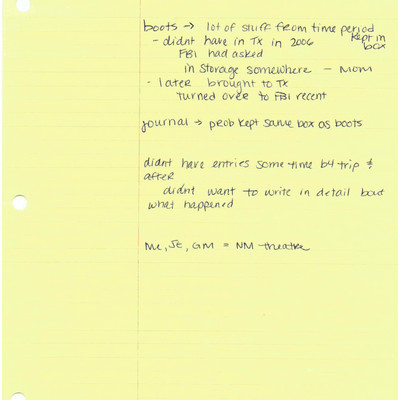 boots → lot of stuff from time period
kept in box
- didnt have in TX in 2006
FBI had asked
in storage somewhere - mom
- later brought to TX
turned over to FBI recent
journal → prob kept same box as boots
didnt have entries some time b4 trip &
after
didnt want to write in detail bout
what happened
Me, JE, GM = NM theatre